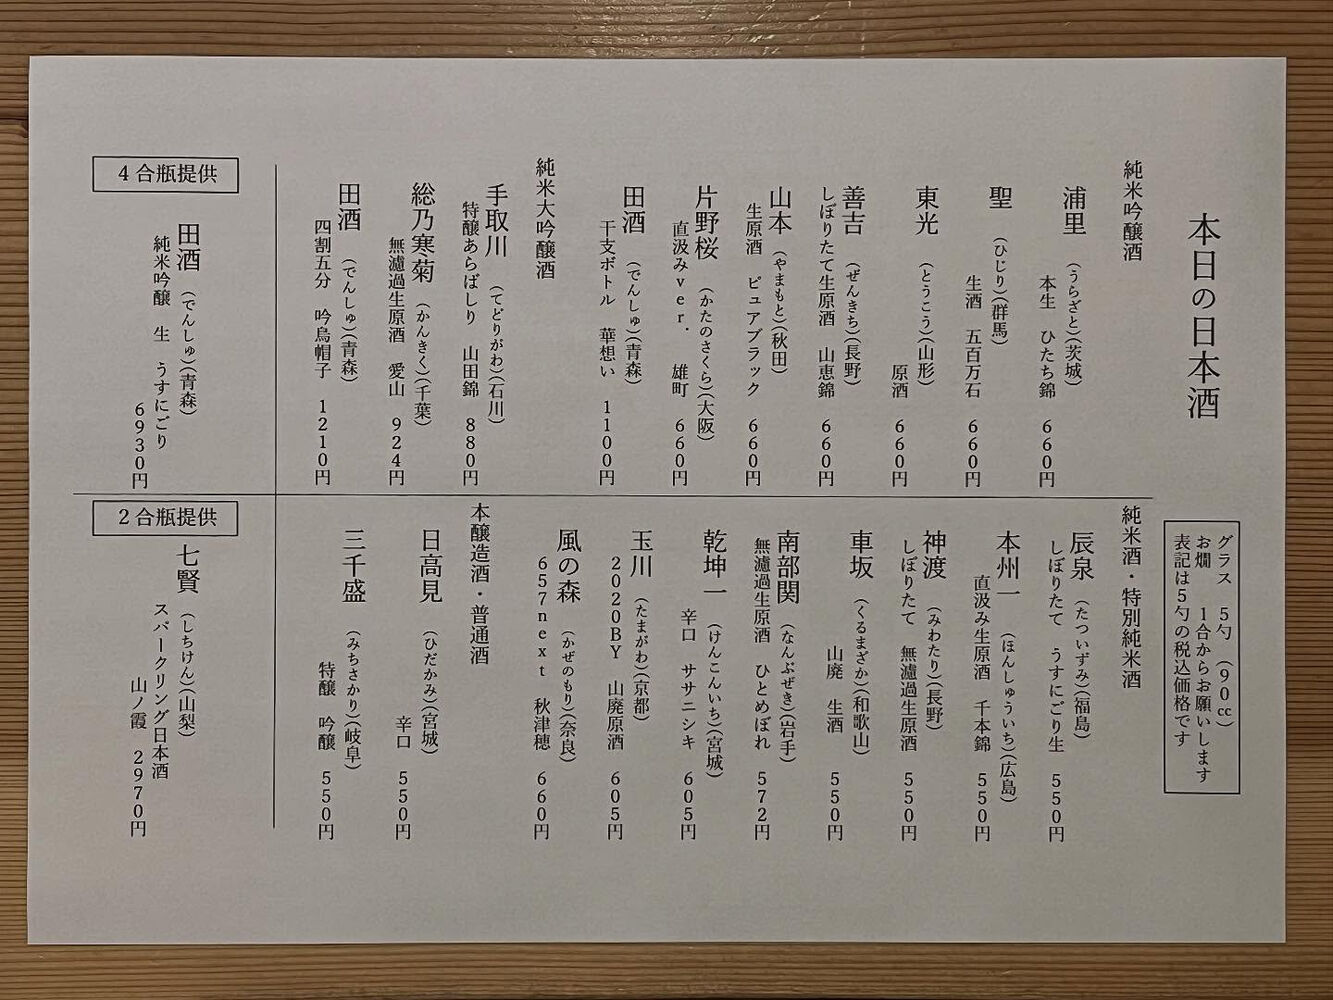 本日の日本酒
グラス　５勺　（９０㏄）
お燗　１合からお願いします
表記は５勺の税込価格です
純米吟醸酒
浦里　（うらざと）（茨城）
本生　ひたち錦　６６０円
聖　（ひじり）（群馬）
生酒　五百万石　６６０円
東光　（とうこう）（山形）
原酒　６６０円
善吉　（ぜんきち）（長野）
しぼりたて生原酒　山恵錦　６６０円
山本　（やまもと）（秋田）
生原酒　ピュアブラック　６６０円
片野桜　（かたのさくら）（大阪）
直汲みｖｅｒ．　雄町　６６０円
田酒　（でんしゅ）（青森）
干支ボトル　華想い　１１００円
純米大吟醸酒
手取川　（てどりがわ）（石川）
特醸あらばしり　山田錦　８８０円
総乃寒菊　（かんきく）（千葉）
無濾過生原酒　愛山　９２４円
田酒　（でんしゅ）（青森）
四割五分　吟烏帽子　１２１０円
純米酒・特別純米酒
辰泉　（たついずみ）（福島）
しぼりたて　うすにごり生　５５０円
本州一　（ほんしゅういち）（広島）
直汲み生原酒　千本錦　５５０円
神渡　（みわたり）（長野）
しぼりたて　無濾過生原酒　５５０円
車坂　（くるまざか）（和歌山）
山廃　生酒　５５０円
南部関　（なんぶぜき）（岩手）
無濾過生原酒　ひとめぼれ　５７２円
乾坤一　（けんこんいち）（宮城）
辛口　ササニシキ　６０５円
玉川　（たまがわ）（京都）
２０２０ＢＹ　山廃原酒　６０５円
風の森　（かぜのもり）（奈良）
６５７ｎｅｘｔ　秋津穂　６６０円
本醸造酒・普通酒
日高見　（ひだかみ）（宮城）
辛口　５５０円
三千盛　（みちさかり）（岐阜）
特醸　吟醸　５５０円
４合瓶提供
田酒　（でんしゅ）（青森）
純米吟醸　生　うすにごり
６９３０円
２合瓶提供
七賢　（しちけん）（山梨）
スパークリング日本酒
山ノ霞　２９７０円